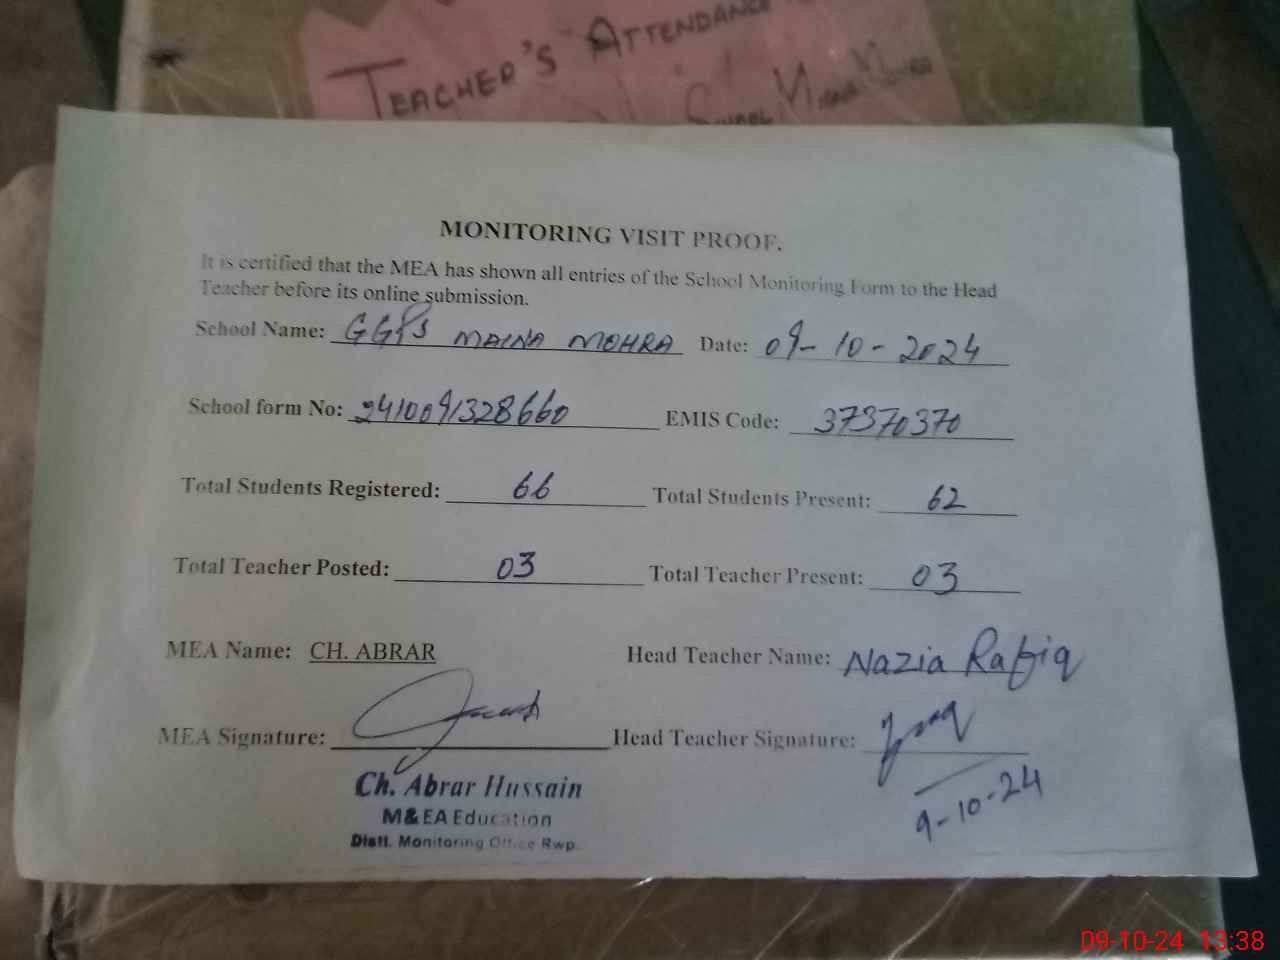 TEACHER'S ATTENDANCE
SCHOOL MAINA MOHRA
MONITORING VISIT PROOF.
It is certified that the MEA has shown all entries of the School Monitoring Form to the Head
Teacher before its online submission.
School Name: GGPS MAINA MOHRA Date: 09-10-2024
School form No: 2410091328660 EMIS Code: 37370370
Total Students Registered: 66 Total Students Present: 62
Total Teacher Posted: 03 Total Teacher Present: 03
MEA Name: CH. ABRAR Head Teacher Name: Nazia Rafiq
MEA Signature: Head Teacher Signature:
9-10-24
Ch. Abrar Hussain
M&EA Education
Distt. Monitoring Office Rwp.
09-10-24 13:38